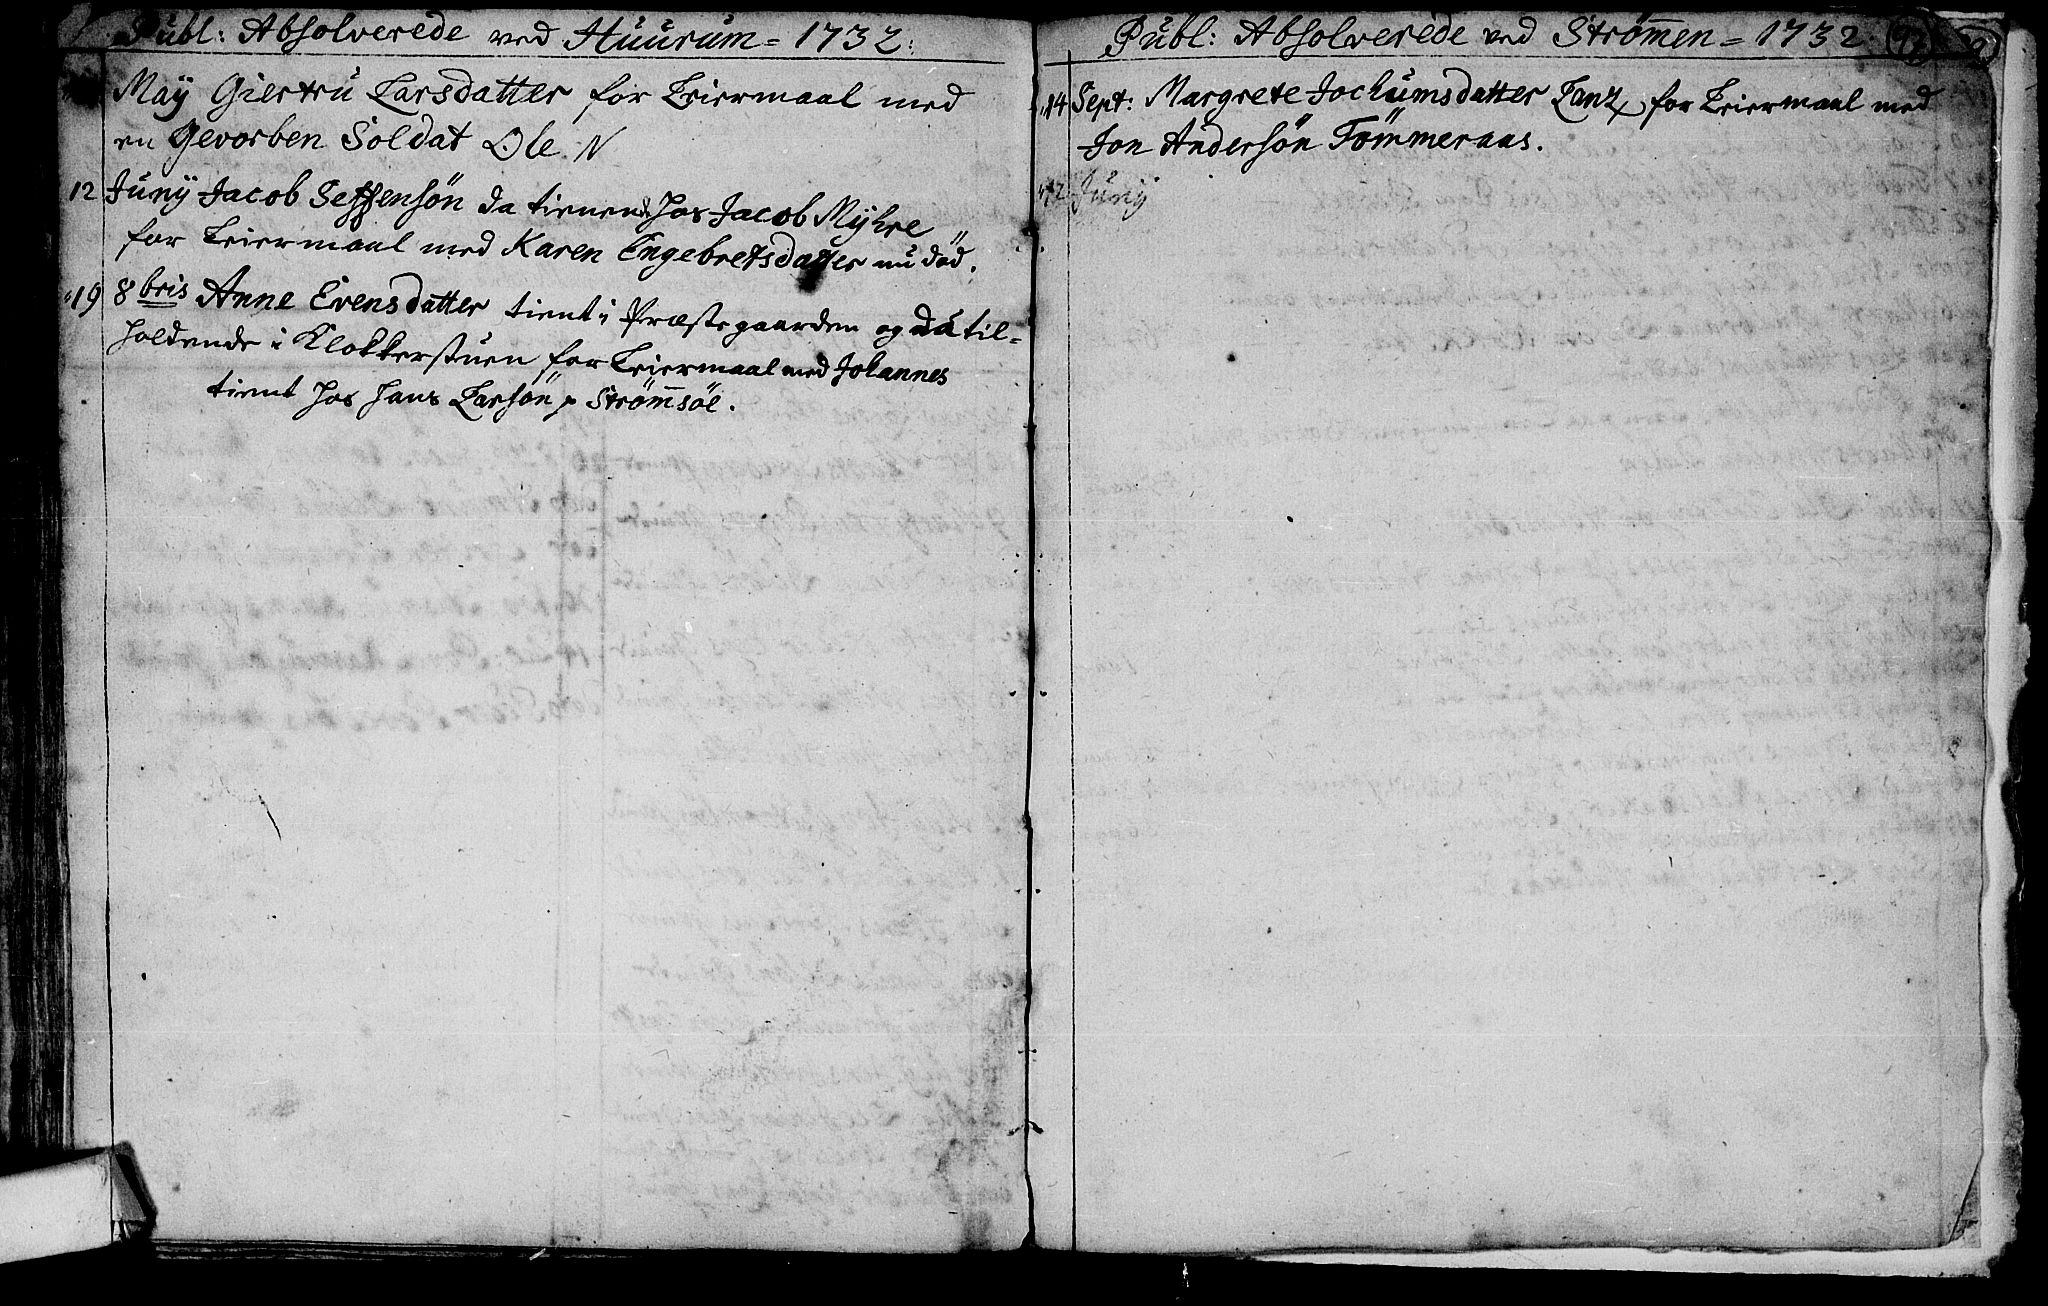 Publ: Absolverede ved Huurum = 1732:
Maÿ Giertru Larsdatter for Leiermaal med
en Gevorben Soldat Ole N
12 Junÿ Jacob Seffensön da tienend hos Jacob Mÿhre
for Leiermaal med Karen Engebretsdatter nu död.
19 8bris Anne Evensdatter tient i Præstegaarden og da til-
holdende i Klokkerstuen for Leiermaal med Johannes
tient hos Hans Larsön p Strömsöe.
Publ: Absolverede ved Strömen = 1732:
14 Sept: Margrete Jochumsdatter Lanz for Leiermaal med
Jon Andersön Tömmeraas.
12 Junÿ